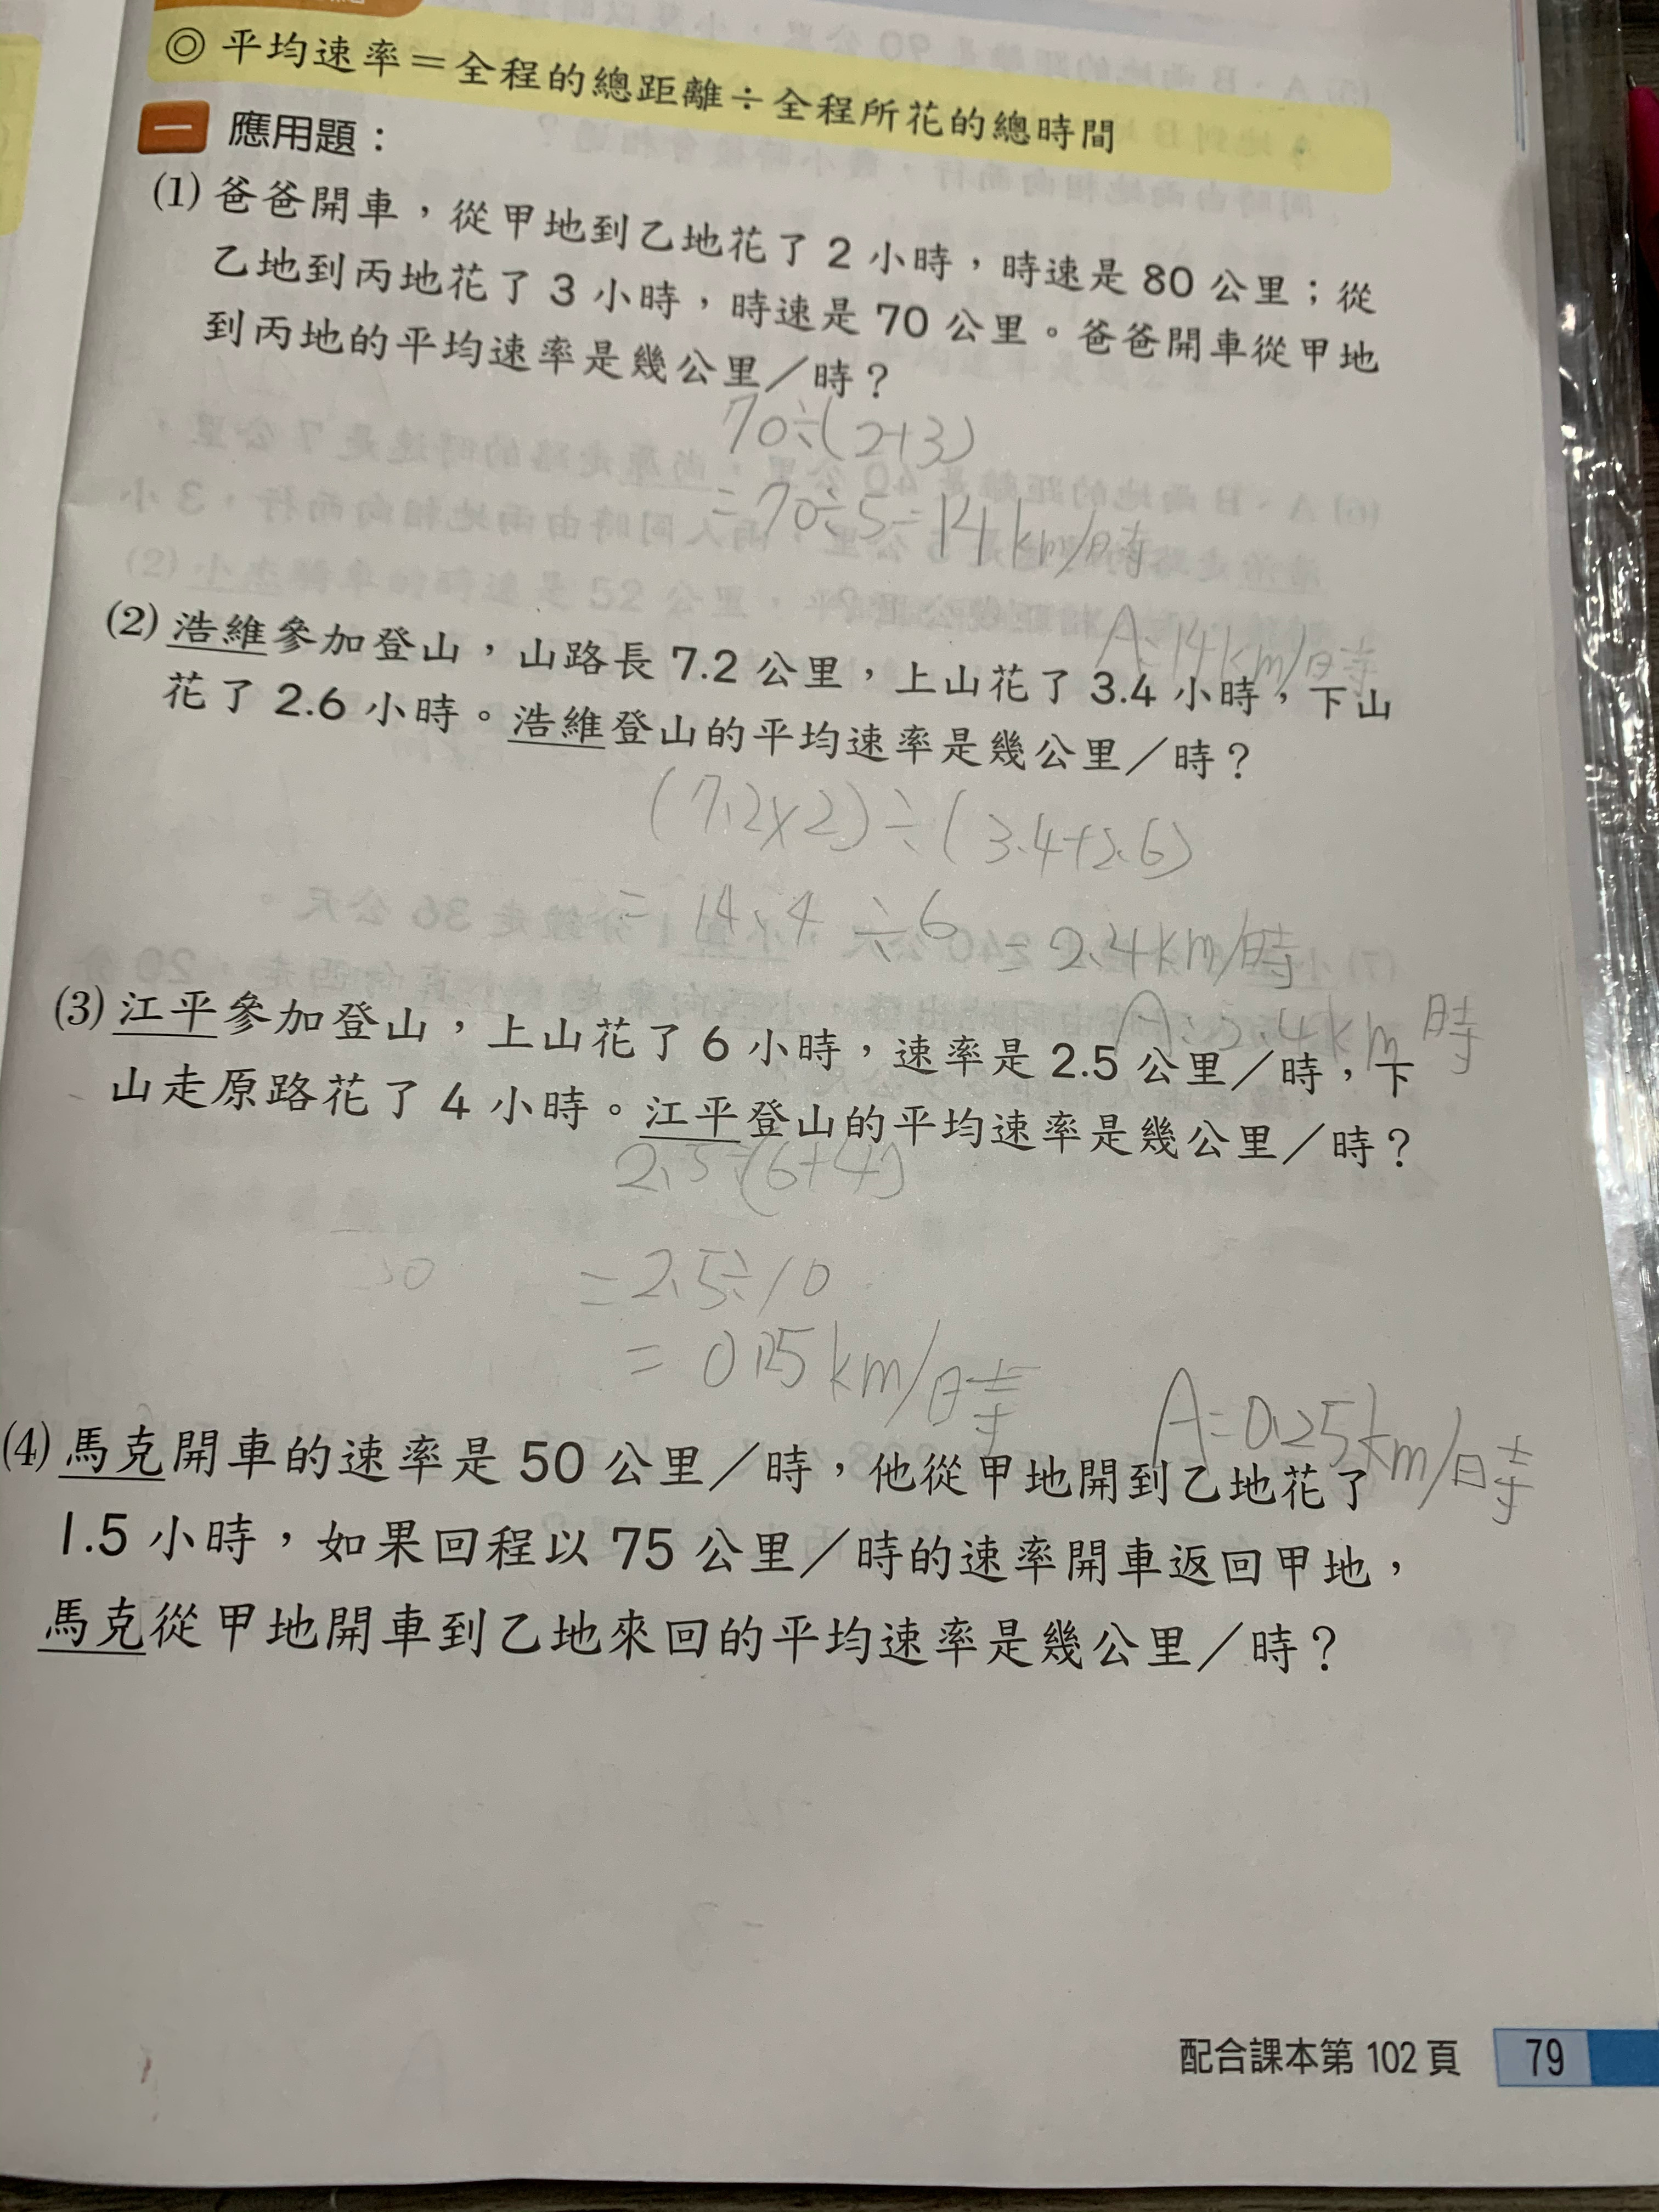 ◎ 平均速率＝全程的總距離÷全程所花的總時間
一 應用題：
(1) 爸爸開車，從甲地到乙地花了 2 小時，時速是 80 公里；從
乙地到丙地花了 3 小時，時速是 70 公里。爸爸開車從甲地
到丙地的平均速率是幾公里／時？
70÷(2+3)
=70÷5=14km/時
A:14km/時
(2) 浩維參加登山，山路長 7.2 公里，上山花了 3.4 小時，下山
花了 2.6 小時。浩維登山的平均速率是幾公里／時？
(7.2×2)÷(3.4+2.6)
= 14.4 ÷6 =2.4km/時
A:2.4km 時
(3) 江平參加登山，上山花了 6 小時，速率是 2.5 公里／時，下
山走原路花了 4 小時。江平登山的平均速率是幾公里／時？
2.5÷(6+4)
=2.5÷10
= 0.25km/時
A=0.25km/時
(4) 馬克開車的速率是 50 公里／時，他從甲地開到乙地花了
1.5 小時，如果回程以 75 公里／時的速率開車返回甲地，
馬克從甲地開車到乙地來回的平均速率是幾公里／時？
配合課本第 102 頁 79